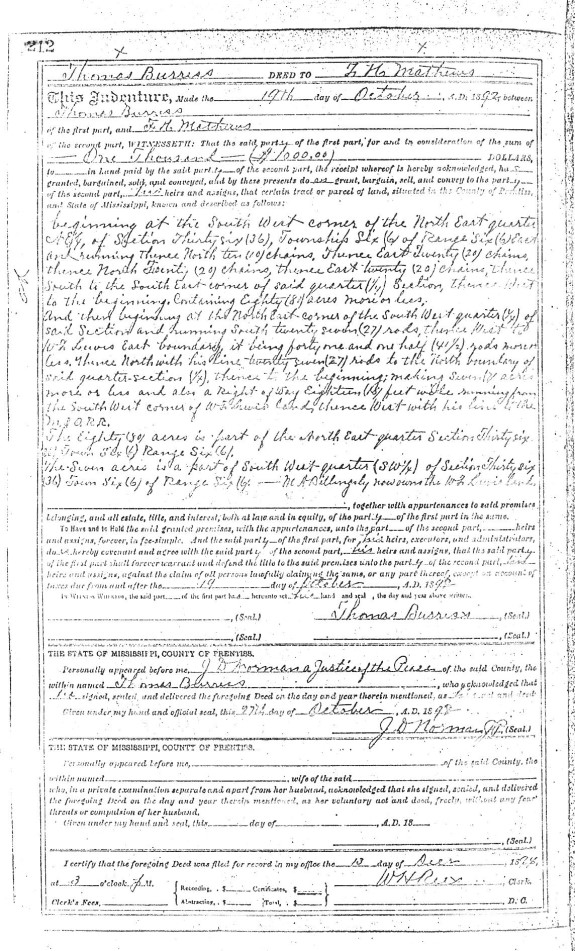 212
Thomas Burriss DEED TO F. H. Mathews
This Indenture, Made the 19th day of October A.D. 1892, between
Thomas Burriss
of the first part, and F. H. Mathews
of the second part, WITNESSETH: That the said party of the first part, for and in consideration of the sum of
One Thousand ($1000.00) DOLLARS,
to in hand paid by the said party of the second part, the receipt whereof is hereby acknowledged, has
granted, bargained, sold, and conveyed, and by these presents does grant, bargain, sell, and convey to the party
of the second part, heirs and assigns, that certain tract or parcel of land, situated in the County of Prentiss,
and State of Mississippi, known and described as follows:
beginning at the South West corner of the North East quarter
of Section Thirty six (36), Township Six (6) of Range Six (6) East
and running thence North ten (10) chains, Thence East Twenty (20) chains,
thence North Twenty (20) chains, thence East twenty (20) chains, thence
South to the South East corner of said quarter (1/4) Section, thence West
to the beginning, Containing Eighty (80) acres more or less.
And then beginning at the North East corner of the South West quarter (1/4) of
said Section and running South twenty seven (27) rods, thence West to
W H Lewis East boundary, it being forty one and one half (41 1/2) rods more or
less, Thence North with his line twenty seven (27) rods to the North boundary of
said quarter-section (1/4), thence to the beginning; making Seven (7) acres
more or less and also a Right of Way Eighteen (18) feet wide running from
the South West corner of W H Lewis land, thence West with his line to the
R.R.
The Eighty (80) acres is part of the North East quarter Section Thirty six
(36) Town Six (6) Range Six (6).
The Seven acres is a part of South West quarter (SW 1/4) of Section Thirty six
(36) Town Six (6) of Range Six (6). M A Billingsly now owns the W H Lewis land
, together with appurtenances to said premises
belonging, and all estate, title, and interest, both at law and in equity, of the party of the first part in the same.
To Have and to Hold the said granted premises, with the appurtenances, unto the part of the second part, heirs
and assigns, forever, in fee-simple. And the said party of the first part, for his heirs, executors, and administrators,
do hereby covenant and agree with the said party of the second part, his heirs and assigns, that the said party
of the first part shall forever warrant and defend the title to the said premises unto the party of the second part,
heirs and assigns, against the claim of all persons lawfully claiming the same, or any part thereof, except on account of
taxes due from and after the 19 day of October A.D. 
IN WITNESS WHEREOF, the said part of the first part ha hereunto set hand and seal, the day and year above written.
(Seal.) Thomas Burriss (Seal.)
(Seal.) (Seal.)
THE STATE OF MISSISSIPPI, COUNTY OF PRENTISS.
Personally appeared before me, J D Norman a Justice of the Peace of the said County, the
within named Thomas Burriss, who acknowledged that
he signed, sealed, and delivered the foregoing Deed on the day and year therein mentioned, as act and deed
Given under my hand and official seal, this 27th day of October A.D. 1898
J D Norman JP (Seal.)
THE STATE OF MISSISSIPPI, COUNTY OF PRENTISS.
Personally appeared before me, of the said County, the
within named , wife of the said
who, in a private examination separate and apart from her husband, acknowledged that she signed, sealed, and delivered
the foregoing Deed on the day and year therein mentioned, as her voluntary act and deed, freely, without any fear
threats or compulsion of her husband.
Given under my hand and seal, this day of , A.D. 18
(Seal.)
I certify that the foregoing Deed was filed for record in my office the 13 day of Decr 1898,
at 3 o'clock P. M. W H Rees Clerk.
Clerk's Fees, Recording, $ Certificates, $
Abstracting, $ Total, $ D. C.